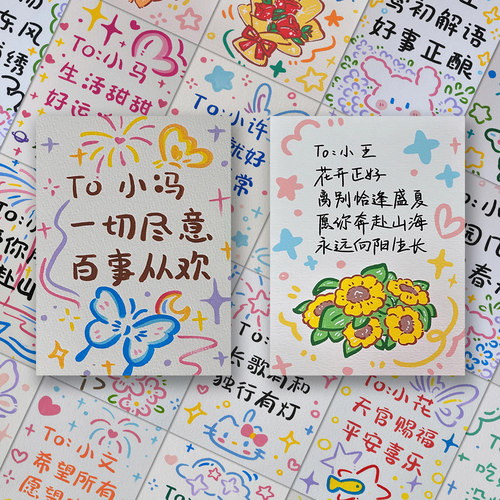 东风
To:小马
生活甜甜
好运
莺初解语
好事正酿
To:小许
就好
常
To 小冯
一切尽意
百事从欢
To:小王
花开正好
离别恰逢盛夏
愿你奔赴山海
永远向阳生长
愿你
奔赴山
长歌有和
独行有灯
To:小文
希望所有
愿望
To:小花
天官赐福
平安喜乐
春
吃